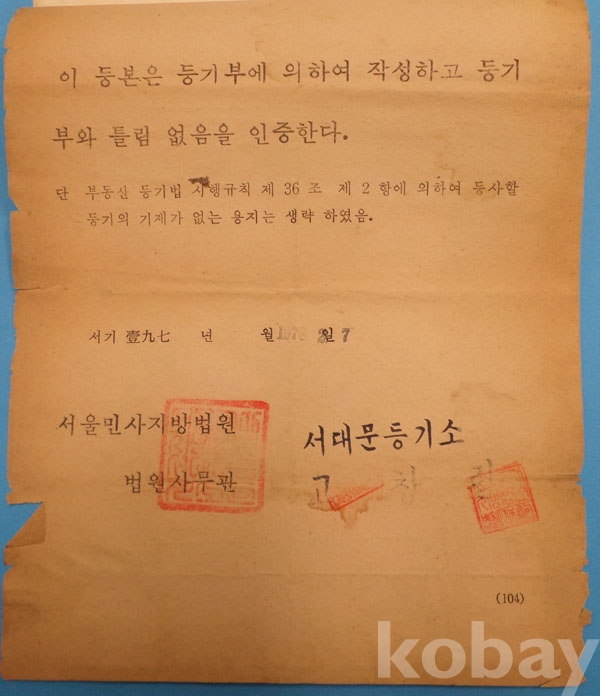 이 등본은 등기부에 의하여 작성하고 등기
부와 틀림 없음을 인증한다.
단 부동산 등기법 시행규칙 제 36 조 제 2 항에 의하여 등사할
등기의 기재가 없는 용지는 생략 하였음.
서기 壹九七 년 월 1978 일 7
서울민사지방법원 서대문등기소
법원사무관 고 창
(104)
kobay